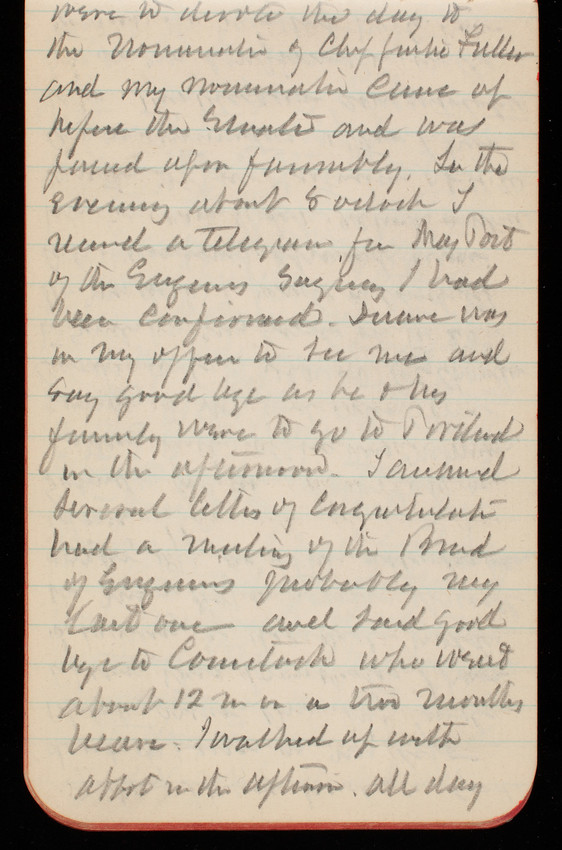 were to devote the day to
the Nomination of Chf Justice Fuller
and my nomination came up
before the Senate and was
passed upon favorably. In the
evening about 8 oclock I
received a telegram from Maj Post
of the Engineers saying I had
been confirmed. Duane was
in my office to see me and
say good bye as he & his
family were to go to Portland
in the afternoon. I answered
several letters of congratulation
had a meeting of the Board
of Engineers probably my
last one and said good
bye to Comstock who went
about 12 m on a two months
leave. I walked up with
Abbot in the afternoon. all day